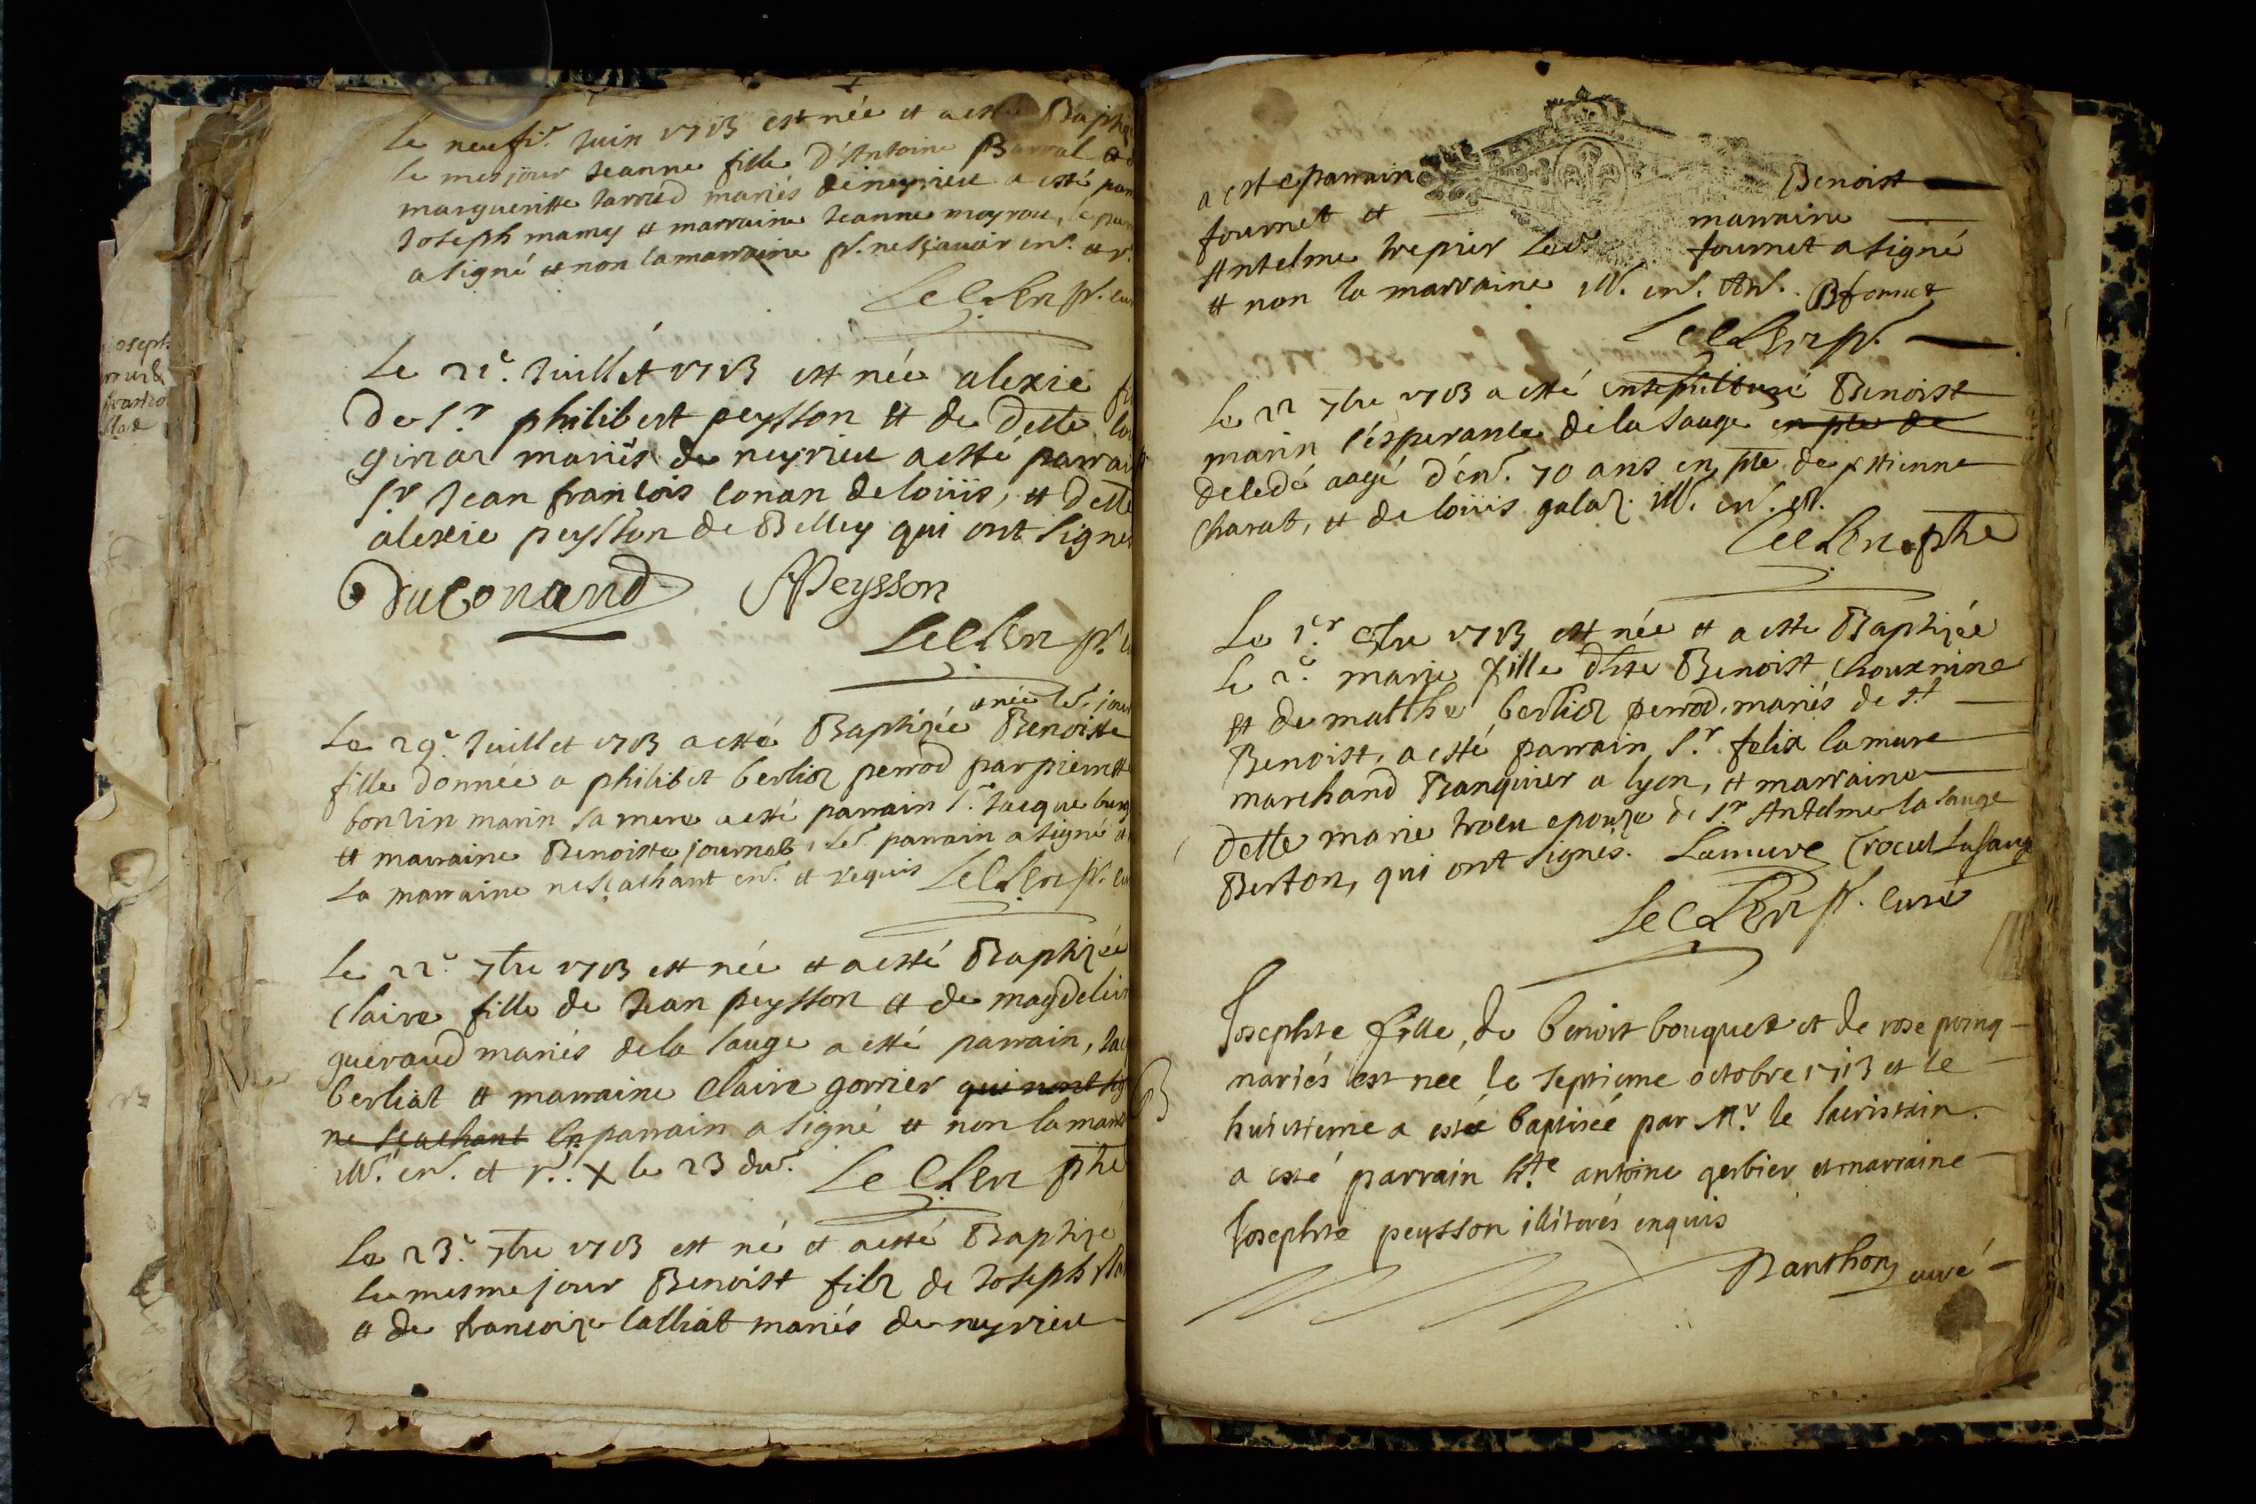 Le neufie. Juin 1713 est née et a esté Baptizé
le mes jour Jeanne fille d'Antoine Barral et
margueritte Jarrod mariés de neyrieu a esté par
Joseph mamy et marraine Jeanne moyrou, le par
a signé et non la marraine pr. ne sçavoir enr. et r.
LeClerc pr. cur
Le 21e. Juillet 1713 est née alexie fi
de Sr philibert peysson et de dette
ginar mariés de neyrieu a esté parrai
Sr Jean francois conan de loüis, et dette
alexie peysson de Belley qui ont signe
Duconand APeysson
LeClerc pr. c
et née led. jour
Le 29e. Juillet 1713 a esté Baptizée Benoiste
fille donnée a philibet berlioz perrod par pierrette
bonvin marin sa mere a esté parrain Sr. Jacque
et marraine Benoiste journet, led. parrain a signé
La marraine ne sçachant enr. et requis LeClerc pr. cu
Le 22e. 7bre 1713 est née et a esté Baptizée
Claire fille de Jean peysson et de magdelein
gueraud mariés de la sauge a esté parrain, Jac
berliat et marraine Claire gorrier qui n'ont sig
ne sçachant le parrain a signé et non la marr
ill. enr. et r. X le 23 dud. Le Clerc pbre
Le 23e. 7bre 1713 est né et a esté Baptizé
le mesme jour Benoist filz de Joseph
et de francoize calliat mariés de neyrieu
a esté parrain Benoist
fournet et marraine
Antelme trepier led. fournet a signé
et non la marraine ill. enr. et r. B fornet
LeClerc pr.
Le 22 7bre 1713 a esté ensepulturé Benoist
marin l'esperance de la sauge en pce de
decedé aagé d'enr. 70 ans en pce. de estienne
Charat, et de loüis galaz ill. enr. et r.
LeClerc pbre
Le 1er 8bre 1713 est née et a esté Baptizée
le 2e. marie fille d'hte Benoist Chouxmine
et de matthie berlioz perrod, mariés de St
Benoist, a esté parrain Sr. felix lamure
marchand Banquier a lyon, et marraine
dette marie trocu epouze de Sr Antelme la sauge
Berton, qui ont signés. Lamure Crocul Lasauge
LeClerc pr. curé
Josephte fille, de benoit bouquet et de rose poing
mariés est nee le septieme octobre 1713 et le
huictieme a esté baptisée par Mr. le sacristain.
a esté parrain hte. antoine gerbier et marraine
Josephte peysson illiterés enquis
Panthon curé